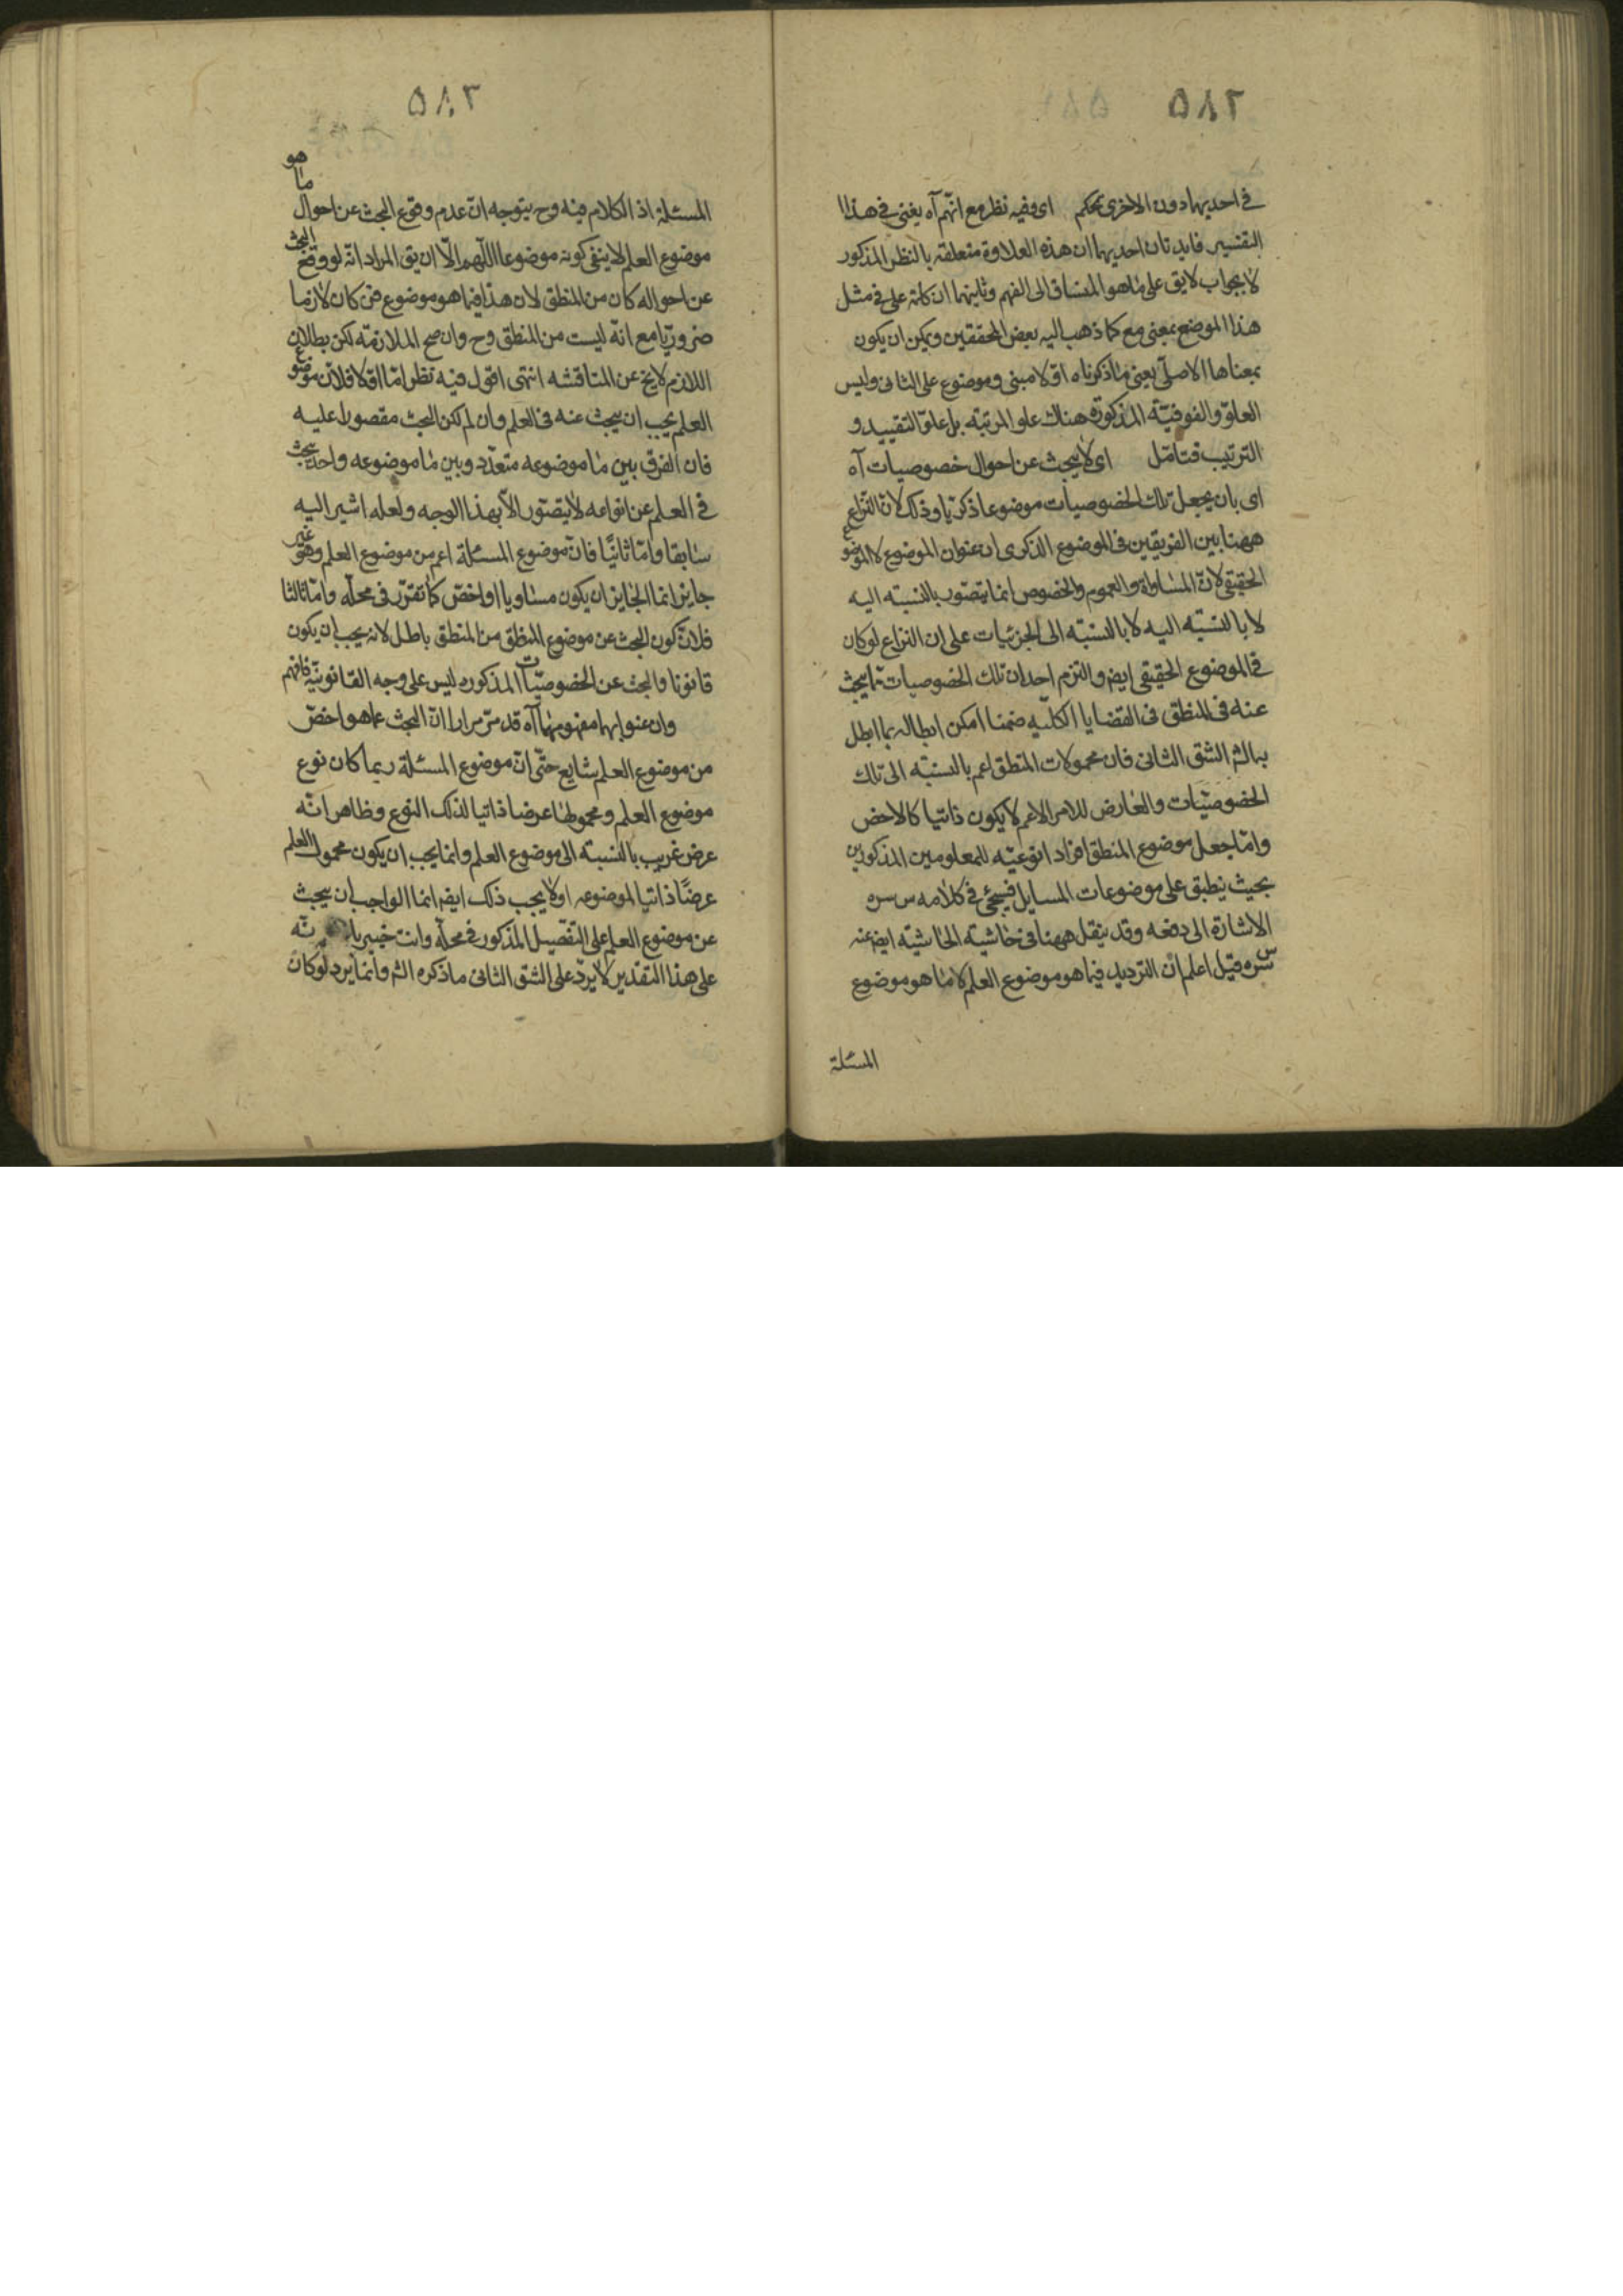 ٥٨٢
في احديهما دون الاخرى تحكم اى وفيه نظر مع انهم آه يعنى في هذا
التفسير فايدتان احديهما ان هذه العلاوة متعلقة بالنظر المذكور
لا بجواب لا يق على ما هو المنساق الى الفهم وثانيهما ان كلمة على في مثل
هذا الموضع بمعنى مع كما ذهب اليه بعض المحققين ويمكن ان يكون
بمعناها الاصلى يعنى ما ذكرناه اولا مبنى وموضوع على الثانى وليس
العلو والفوقية المذكورة هناك علو المرتبة بل علو التقييد و
الترتيب فتامل اى لا يبحث عن احوال خصوصيات آه
اى بان يجعل تلك الخصوصيات موضوعا ذكريا وذلك لان النزاع
ههنا بين الفريقين فى الموضوع الذكرى اى عنوان الموضوع لا الموضوع
الحقيقى لان المساواة والعموم والخصوص انما يتصور بالنسبة اليه
لا بالنسبة اليه لا بالنسبة الى الجزئيات على ان النزاع لو كان
في الموضوع الحقيقى ايضا والتزم احد ان تلك الخصوصيات مما يبحث
عنه فى المنطق فى القضايا الكلية ضمنا امكن ابطاله بما ابطل
به الشر الشق الثانى فان محمولات المنطق اعم بالنسبة الى تلك
الخصوصيات والعارض للامر الاعم لا يكون ذاتيا كالاخص
واما جعل موضوع المنطق افرادا نوعية للمعلومين المذكورين
بحيث ينطبق على موضوعات المسايل فسيجئ في كلامه س سره
الاشارة الى دفعه وقد ينقل ههنا فى حاشية الحاشية ايضا عنه
س سره قيل اعلم ان الترديد فيما هو موضوع العلم لا ما هو موضوع
المسئلة
٥٨٣
المسئلة اذ الكلام فيه وح يتوجه ان عدم وقوع البحث عن احوال ما هو
موضوع العلم لا ينفى كونه موضوعا اللهم الا ان يق المراد انه لو وقع البحث
عن احواله كان من المنطق لان هذا فيما هو موضوع فن كان لازما
ضروريا مع انه ليست من المنطق وح وان صح الملازمة لكن بطلان
اللازم لا يخ عن المناقشه انتهى اقول فيه نظر اما اولا فلان موضوع
العلم يجب ان يبحث عنه فى العلم وان لم يكن البحث مقصورا عليه
فان الفرق بين ما موضوعه متعدد وبين ما موضوعه واحد يبحث
في العلم عن انواعه لا يتصور الا بهذا الوجه ولعله اشير اليه
سابقا واما ثانيا فان موضوع المسئلة اعم من موضوع العلم وهو غير
جايز انما الجايز ان يكون مساويا او اخص كما تقرر فى محله واما ثالثا
فلان كون البحث عن موضوع المنطق من المنطق باطل لانه يجب ان يكون
قانونا والبحث عن الخصوصيات المذكوره ليس على وجه القانونية فافهم
وان عنوا بهما مفهومهما آه قد مر مرارا ان البحث عما هو اخص
من موضوع العلم شايع حتى ان موضوع المسئلة ربما كان نوع
موضوع العلم ومحمولها عرضا ذاتيا لذلك النوع وظاهر انه
عرض غريب بالنسبة الى موضوع العلم وانما يجب ان يكون محمول العلم
عرضًا ذاتيا لموضوعه او لا يجب ذلك ايضا انما الواجب ان يبحث
عن موضوع العلم على التفصيل المذكور في محله وانت خبير بانه
على هذا التقدير لا يرد على الشق الثانى ما ذكره الشر وانما يرد لو كان